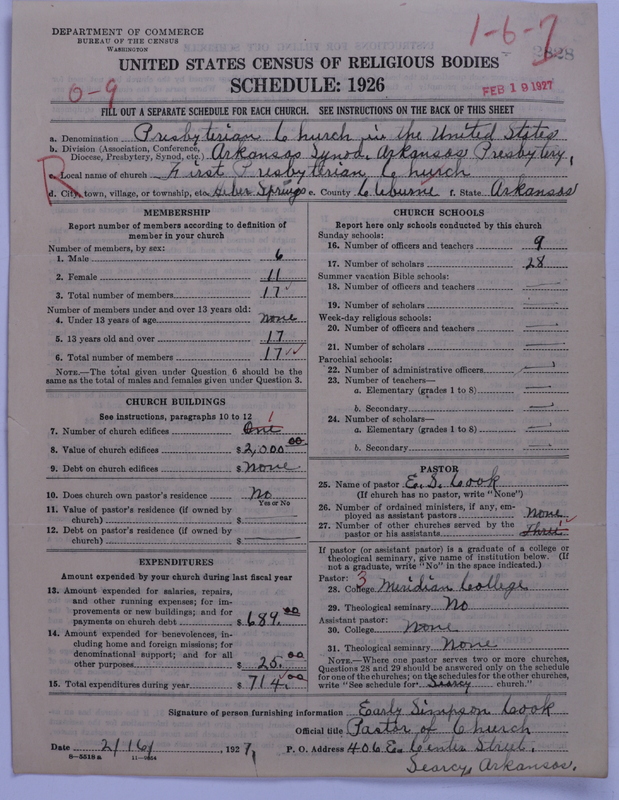 DEPARTMENT OF COMMERCE
BUREAU OF THE CENSUS
WASHINGTON
1-6-7
2828
UNITED STATES CENSUS OF RELIGIOUS BODIES
SCHEDULE: 1926
0-9
FEB 19 1927
FILL OUT A SEPARATE SCHEDULE FOR EACH CHURCH. SEE INSTRUCTIONS ON THE BACK OF THIS SHEET
a. Denomination Presbyterian Church in the United States
b. Division (Association, Conference, Diocese, Presbytery, Synod, etc.) Arkansas Synod, Arkansas Presbytery,
R
c. Local name of church First Presbyterian Church
d. City, town, village, or township, etc. Heber Springs e. County Cleburne f. State Arkansas
MEMBERSHIP
Report number of members according to definition of
member in your church
Number of members, by sex:
1. Male 6
2. Female 11
3. Total number of members 17 ✓
Number of members under and over 13 years old:
4. Under 13 years of age none
5. 13 years old and over 17
6. Total number of members 17 ✓✓
NOTE.—The total given under Question 6 should be
same as the total of males and females given under Question 3.
CHURCH BUILDINGS
See instructions, paragraphs 10 to 12
7. Number of church edifices One 1
8. Value of church edifices $ 2,000 00
9. Debt on church edifices $ None
10. Does church own pastor's residence No
Yes or No
11. Value of pastor's residence (if owned by
church) $
12. Debt on pastor's residence (if owned by
church) $
EXPENDITURES
Amount expended by your church during last fiscal year
13. Amount expended for salaries, repairs,
and other running expenses; for im-
provements or new buildings; and for
payments on church debt $ 689. 00
14. Amount expended for benevolences, in-
cluding home and foreign missions; for
denominational support; and for all
other purposes $ 25. 00
15. Total expenditures during year $ 714. 00
CHURCH SCHOOLS
Report here only schools conducted by this church
Sunday schools:
16. Number of officers and teachers 9
17. Number of scholars 28
Summer vacation Bible schools:
18. Number of officers and teachers
19. Number of scholars
Week-day religious schools:
20. Number of officers and teachers
21. Number of scholars
Parochial schools:
22. Number of administrative officers
23. Number of teachers—
a. Elementary (grades 1 to 8)
b. Secondary
24. Number of scholars—
a. Elementary (grades 1 to 8)
b. Secondary
PASTOR
25. Name of pastor E. S. Cook
(If church has no pastor, write "None")
26. Number of ordained ministers, if any, em-
ployed as assistant pastors None
27. Number of other churches served by the
pastor or his assistants Three ✓
If pastor (or assistant pastor) is a graduate of a college or
theological seminary, give name of institution below. (If
not a graduate, write "No" in the space indicated.)
Pastor: 3
28. College Meridian College
29. Theological seminary No
Assistant pastor:
30. College None
31. Theological seminary None
NOTE.—Where one pastor serves two or more churches,
Questions 28 and 29 should be answered only on the schedule
for one of the churches; on the schedules for the other churches,
write "See schedule for Searcy church."
Signature of person furnishing information Early Simpson Cook
Official title Pastor of Church
Date 2/16/, 1927, P. O. Address 406 E. Center Street,
Searcy, Arkansas.
8-5518 a